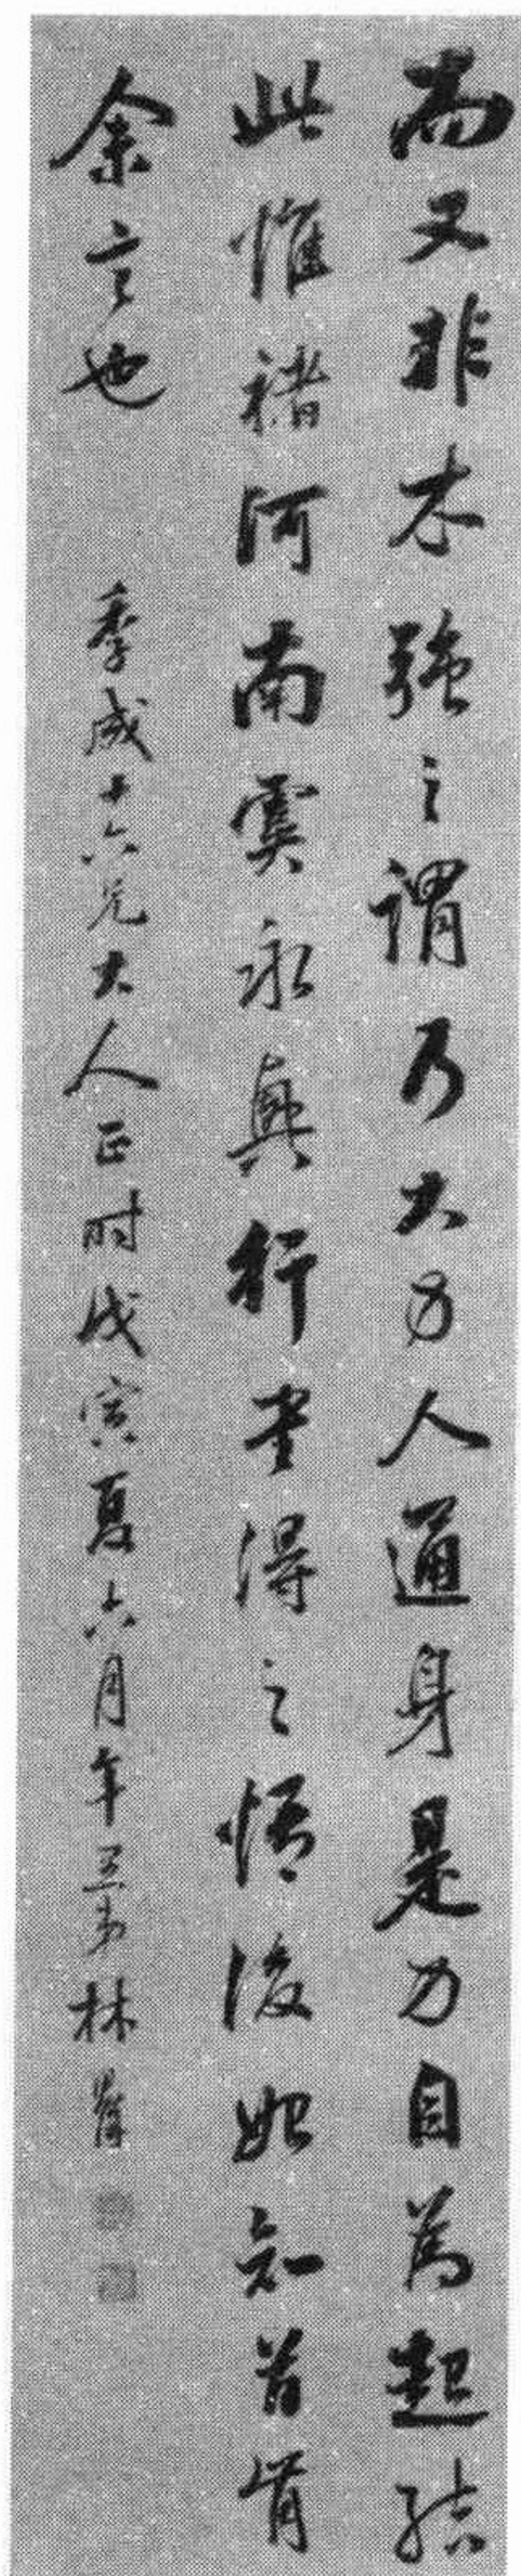 而又非木強之謂乃大力人通身是力自為起結
此惟褚河南虞永興行書得之悟後始知吾
余言也
季咸十六兄大人正时戊寅夏六月年三弟林